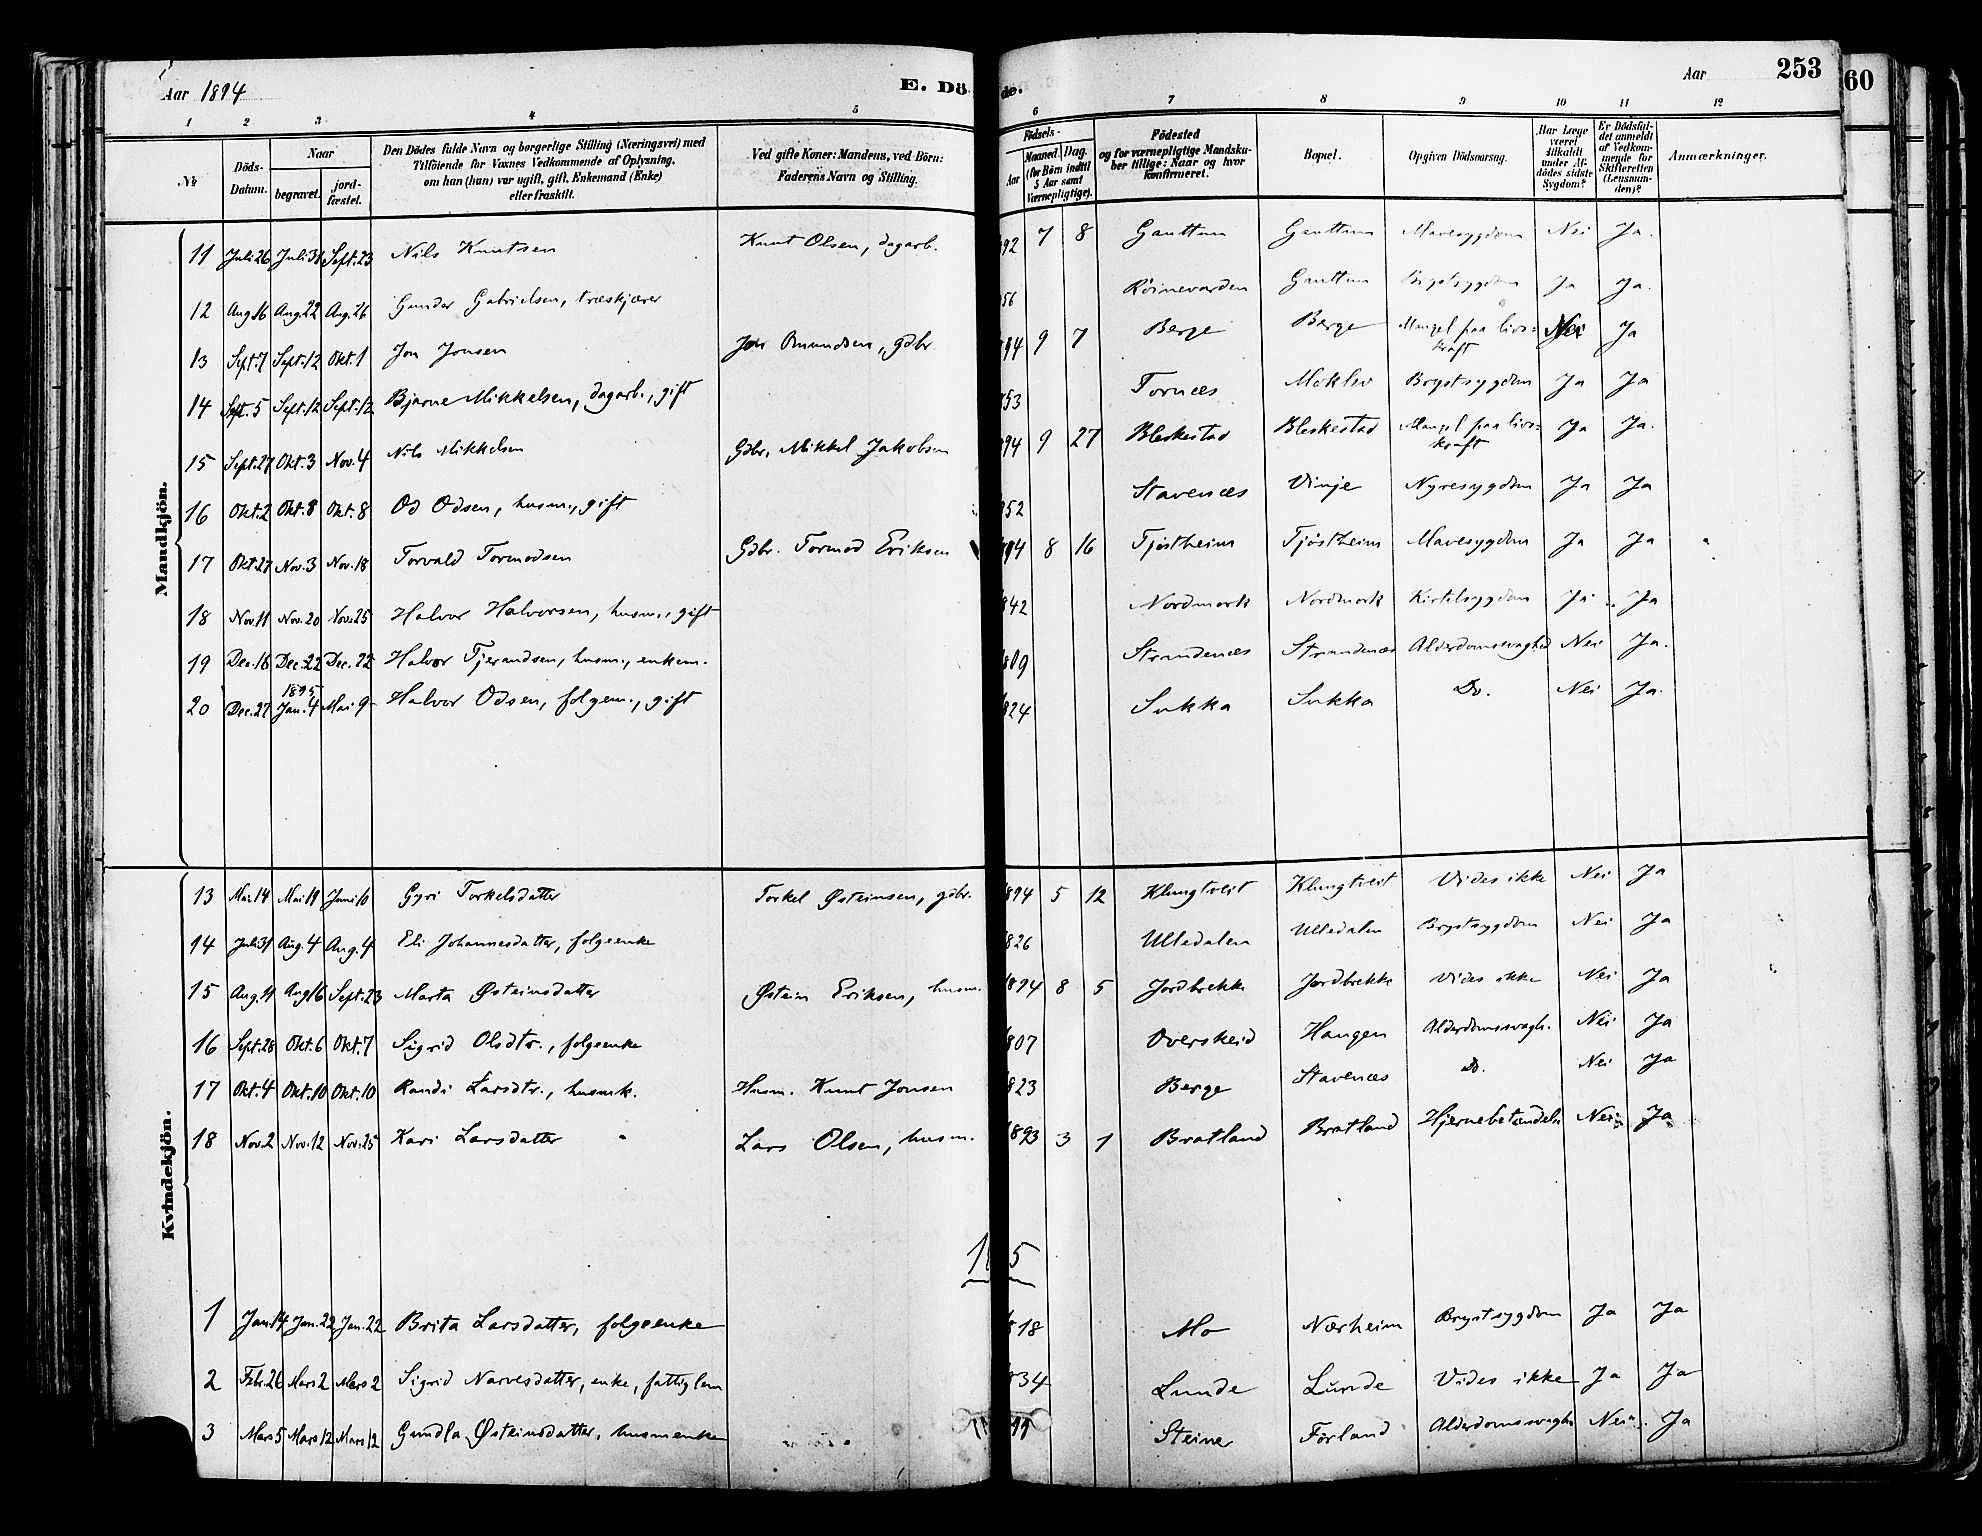 Aar 1894
E. Dö
de.
Aar
253
60
1 2 3 4 5 6 7 8 9 10 11 12
№
Döds-Datum.
Naar
begravet.
jord-fæstet.
Den Dödes fulde Navn og borgerlige Stilling (Næringsvei) med
Tilföiende for Voxnes Vedkommende af Oplysning,
om han (hun) var ugift, gift, Enkemand (Enke)
eller fraskilt.
Ved gifte Koner: Mandens, ved Börn:
Faderens Navn og Stilling.
Födsels-
Aar
Maaned. Dag.
(for Börn indtil
5 Aar samt
Værnepligtige).
Födested
og for værnepligtige Mandska-
ber tillige: Naar og hvor
Konfirmeret.
Bopæl.
Opgiven Dödsaarsag.
Har Læge
været
tilkaldt
under Af-
dödes sidste
Sygdom?
Er Dödsfal-
det anmeldt
af Vedkom-
mende for
Skifteretten
(Lensman-
den)?
Anmærkninger.
Mandkjön.
11 Juli 26 Juli 31 Sept. 23 Nils Knutsen Knut Olsen, dagarb. 92 7 8 Gauttun Gauttun Mavesygdom Nei Ja.
12 Aug 16 Aug. 22 Aug. 26 Gunder Gabrielsen, træskjærer 56 Röinevarden Gauttun Brystsygdom Ja Ja.
13 Sept. 7 Sept. 12 Okt. 1 Jon Jonsen Jon Amundsen, gdbr. 94 9 7 Berge Berge Mangel paa livs-
kraft Nei Ja
14 Sept. 5 Sept. 12 Sept. 12 Bjarne Mikkelsen, dagarb., gift 853 Tornæs Moklev Brystsygdom Ja Ja
15 Sept. 27 Okt. 3 Nov. 4 Nils Mikkelsen Gdbr. Mikkel Jakobsen 894 9 27 Bleskestad Bleskestad Mangel paa livs=
kraft Ja Ja.
16 Okt. 2 Okt. 8 Okt. 8 Od Odsen, husm., gift 852 Stavenæs Vinje Nyresygdom Ja Ja
17 Okt. 27 Nov. 3 Nov. 18 Torvald Tormodsen Gdbr. Tormod Eriksen 894 8 16 Tjöstheim Tjöstheim Mavesygdom Ja Ja
18 Nov. 11 Nov. 20 Nov. 25 Halvor Halvorsen, husm., gift 842 Nordmork Nordmork Kirtelsygdom Ja Ja
19 Dec. 16 Dec. 22 Dec. 22 Halvor Tjerandsen, husm., enkem. 809 Strandenæs Strandenæs Alderdomssvaghed Nei Ja.
1895
20 Dec. 27 Jan. 4 Mai 9 Halvor Odsen, folgem., gift 824 Sukka Sukka Do. Nei Ja.
Kvindekjön.
13 Mai 14 Mai 19 Juni 10 Gyri Torkelsdatter Torkel Østeinsen, gdbr. 894 5 12 Klungtveit Klungtveit Vides ikke Nei Ja
14 Juli 31 Aug. 4 Aug. 4 Eli Johannesdatter, folgeenke 826 Ulledalen Ulledalen Brystsygdom Nei Ja
15 Aug. 11 Aug 16 Sept. 23 Marta Østeinsdatter Østein Eriksen, husm. 1894 8 5 Jordbrekke Jordbrekke Vides ikke Nei Ja
16 Sept. 28 Okt. 6 Okt. 7 Sigrid Olsdtr., folgeenke 807 Overskeid Haugen Alderdomssvagh. Nei Ja
17 Okt. 4 Okt. 10 Okt. 10 Randi Larsdtr., husmk. Husm. Knut Jonsen 823 Berge Stavenæs Do. Nei Ja
18 Nov. 2 Nov. 12 Nov. 25 Kari Larsdatter Lars Olsen, husm. 1893 3 1 Bratland Bratland Hjernebetændelse Nei Ja
1 5
1 Jan. 14 Jan. 22 Jan. 22 Brita Larsdatter, folgeenke 818 Mo Nærheim Brystsygdom Ja Ja
2 Febr. 26 Mars 2 Mars 2 Sigrid Narvesdatter, enke, fattiglem 834 Lunde Lunde Vides ikke Ja Ja
3 Mars 5 Mars 12 Mars 12 Gundla Østeinsdatter, husmenke 11 Steiner Förland Alderdomssvaghed Nei Ja